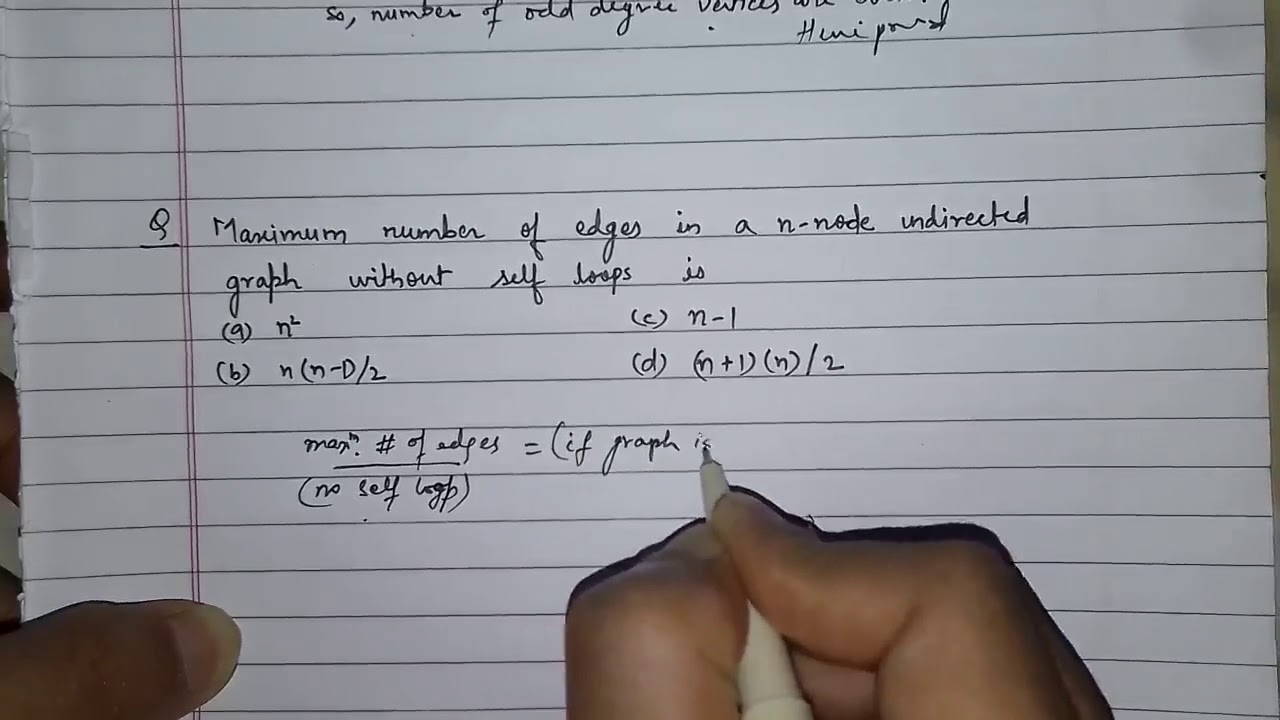 so, number of odd degree vertices are
Q Maximum number of edges in a n-node undirected
graph without self loops is
(a) n² (c) n-1
(b) n(n-1)/2 (d) (n+1)(n)/2
maxᵐ. # of edges = (if graph is
(no self loop)